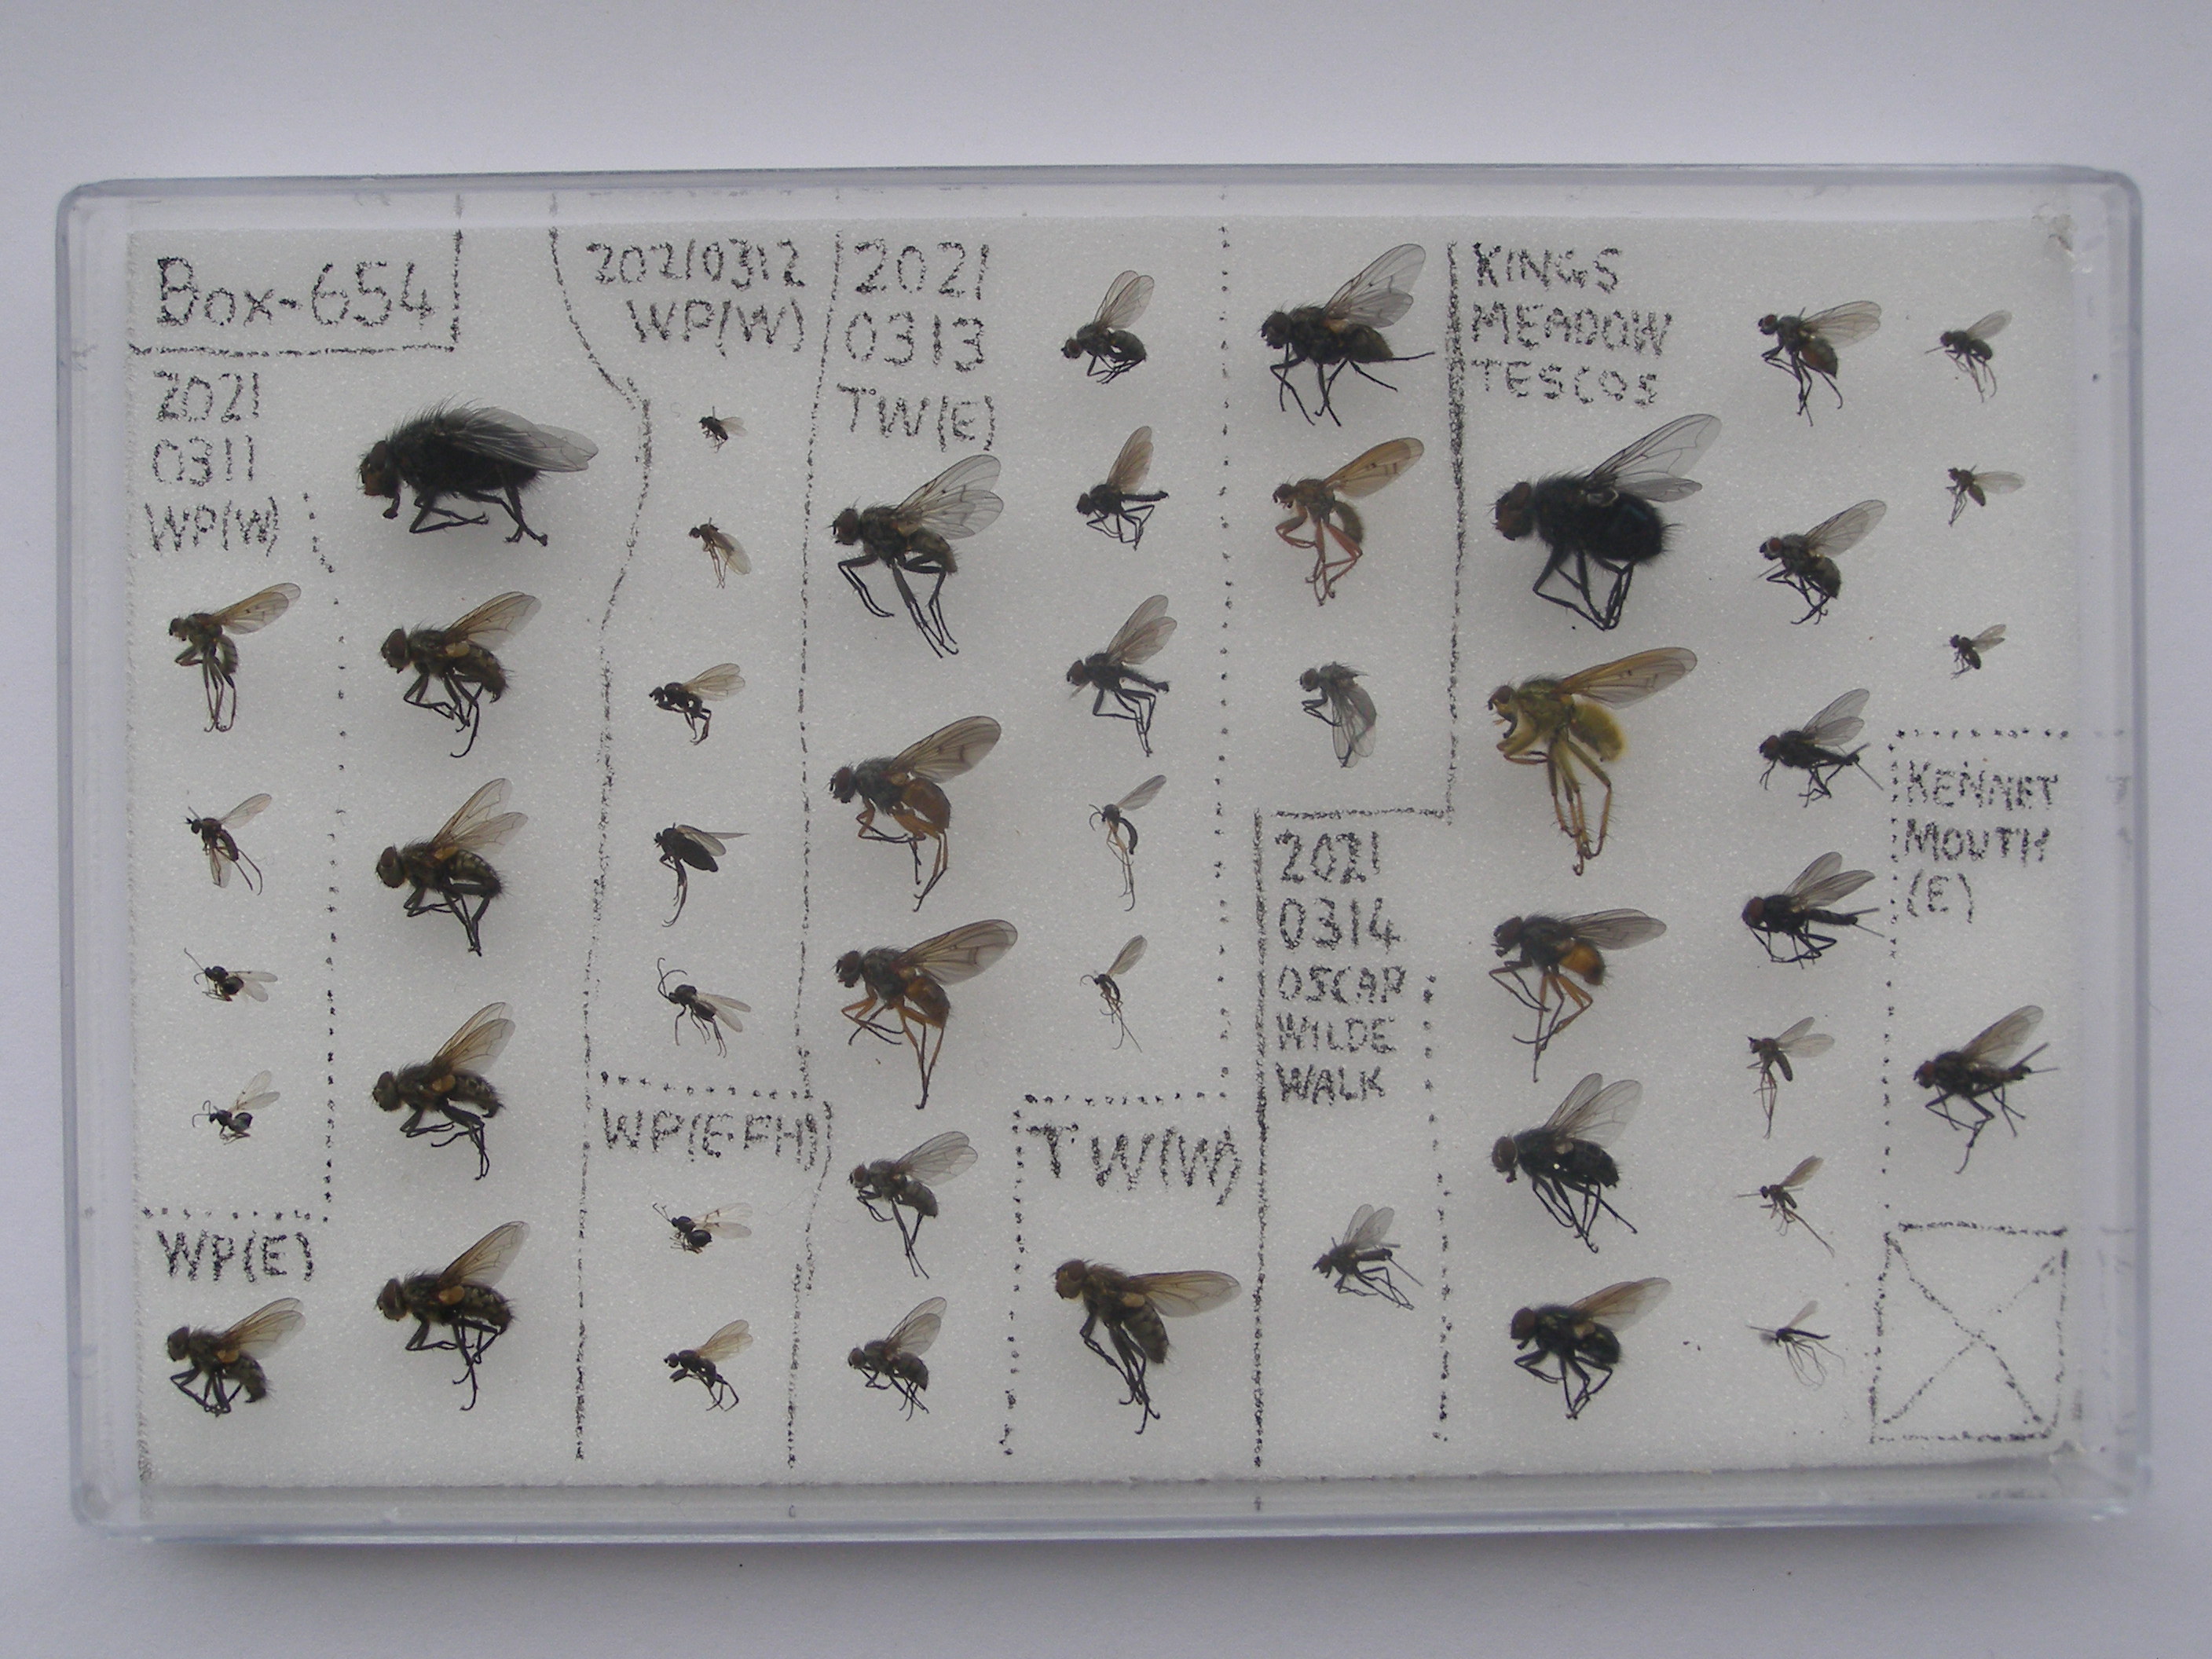 Box-654
2021
0311
WP(W)
WP(E)
2021/0312
WP(W)
WP(EFH)
2021
0313
TW(E)
TW(W)
2021
0314
OSCAR
WILDE
WALK
KINGS
MEADOW
TESCOS
KENNET
MOUTH
(E)